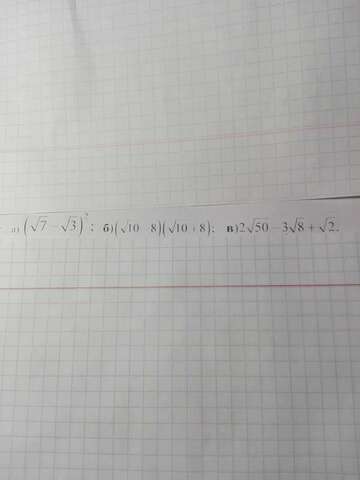 а) (√7 − √3)²; б)(√10 − 8)(√10 + 8); в)2√50 − 3√8 + √2.